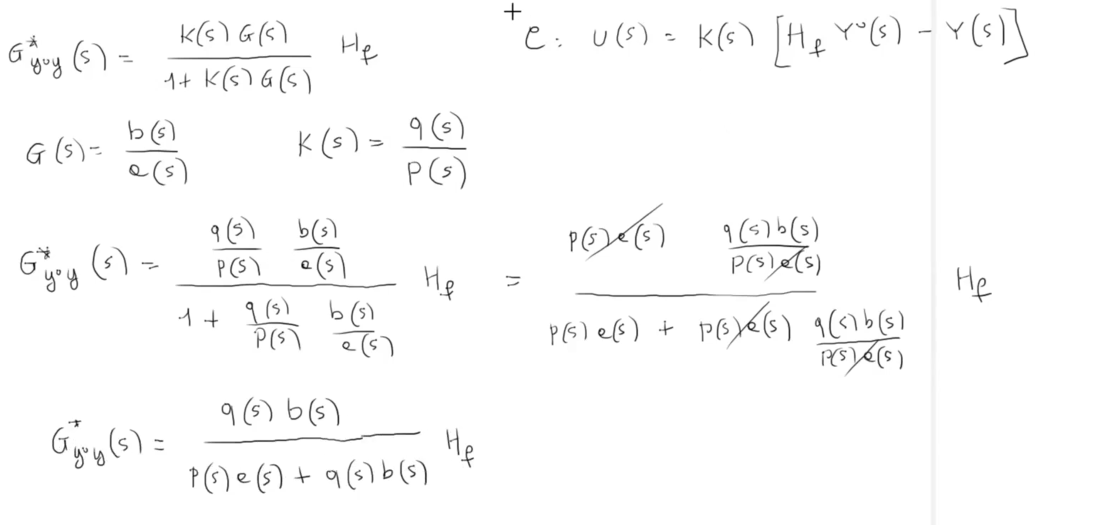 G*_{y°y}(s) = \frac{K(s) G(s)}{1 + K(s) G(s)} H_f
+ C: U(s) = K(s) [H_f Y°(s) - Y(s)]
G(s) = \frac{b(s)}{a(s)}    K(s) = \frac{q(s)}{p(s)}
G*_{y°y}(s) = \frac{\frac{q(s)}{p(s)} \frac{b(s)}{a(s)}}{1 + \frac{q(s)}{p(s)} \frac{b(s)}{a(s)}} H_f = \frac{p(s) a(s) \frac{q(s) b(s)}{p(s) a(s)}}{p(s) a(s) + p(s) a(s) \frac{q(s) b(s)}{p(s) a(s)}} H_f
G*_{y°y}(s) = \frac{q(s) b(s)}{p(s) a(s) + q(s) b(s)} H_f